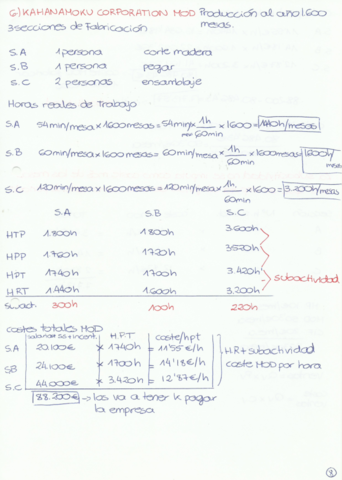 6) KAHANAMOKU CORPORATION MOD Producción al año 1.600 mesas.
3 secciones de Fabricación
S.A 1 persona corte madera
S.B 1 persona pegar
S.C 2 personas ensamblaje
Horas reales de Trabajo
S.A 54min/mesa x 1600mesas = 54min/mesa x 1h/60min x 1600 = 1440h/mesas
S.B 60min/mesa x 1600mesas = 60min/mesa x 1h/60min x 1600mesas = 1600h/mesas
S.C 120min/mesa x 1600mesas = 120min/mesa x 1h/60min x 1600 = 3.200h/mesas
S.A S.B S.C
HTP 1.800h 1800h 3.600h
HPP 1760h 1720h 3.520h
HPT 1740h 1700h 3.420h
subactividad
HRT 1.440h 1.600h 3.200h
Subach 300h 100h 220h
costes totales MOD
salarios ss+incent. H.P.T coste/hpt
S.A 20.100€ x 1740h = 11'55€/h
SB 24.100€ x 1700h = 14'18€/h
S.C 44.000€ x 3.420h = 12'87€/h
H.R + subactividad
coste MOD por hora
88.200€ → los va a tener k pagar
la empresa
8